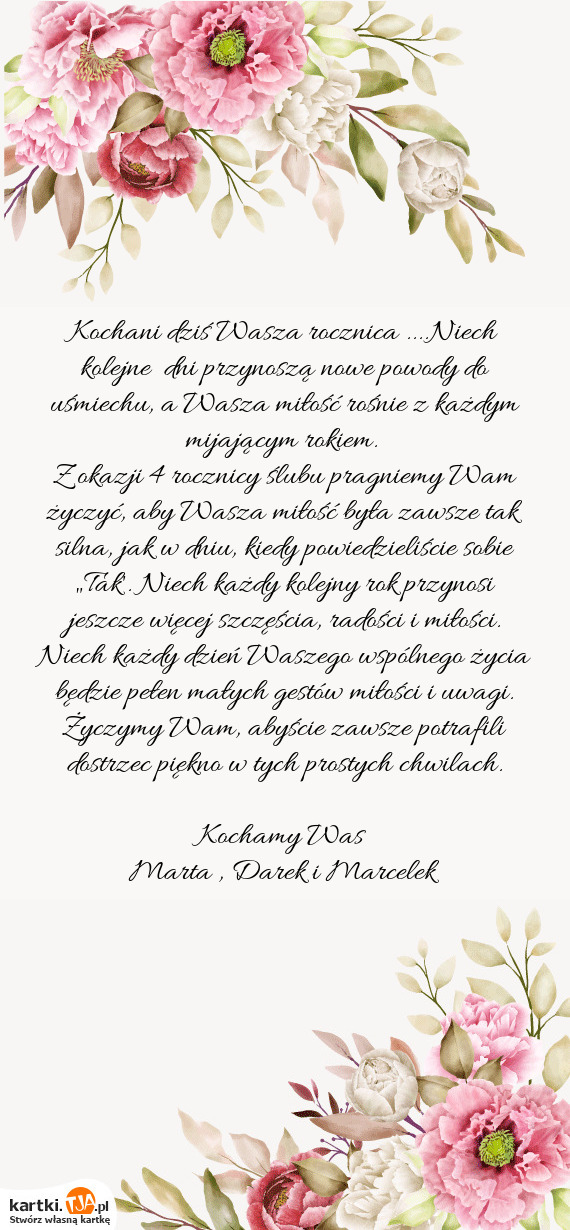 Kochani dziś Wasza rocznica ....Niech
kolejne dni przynoszą nowe powody do
uśmiechu, a Wasza miłość rośnie z każdym
mijającym rokiem.
Z okazji 4 rocznicy ślubu pragniemy Wam
życzyć, aby Wasza miłość była zawsze tak
silna, jak w dniu, kiedy powiedzieliście sobie
„Tak”. Niech każdy kolejny rok przynosi
jeszcze więcej szczęścia, radości i miłości.
Niech każdy dzień Waszego wspólnego życia
będzie pełen małych gestów miłości i uwagi.
Życzymy Wam, abyście zawsze potrafili
dostrzec piękno w tych prostych chwilach.
Kochamy Was
Marta , Darek i Marcelek
kartki.TJA.pl
Stwórz własną kartkę